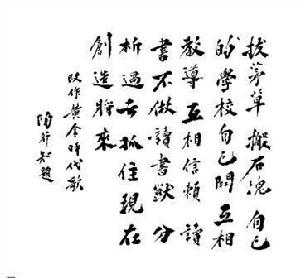 拔茅草搬石塊自己
的學校自己開互相
教導互相信賴讀
書不做讀書獃分
析過去抓住現在
創造將來
改作黃金時代歌
陶行知題